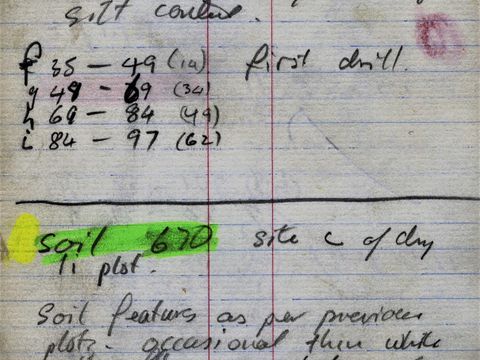 silt content.
f 35 - 49 (14) first drill.
g 49 - 69 (34)
h 69 - 84 (49)
i 84 - 97 (62)
soil 670 site C of dry
Ti plot.
Soil features as per previous
plot. occasional thin white